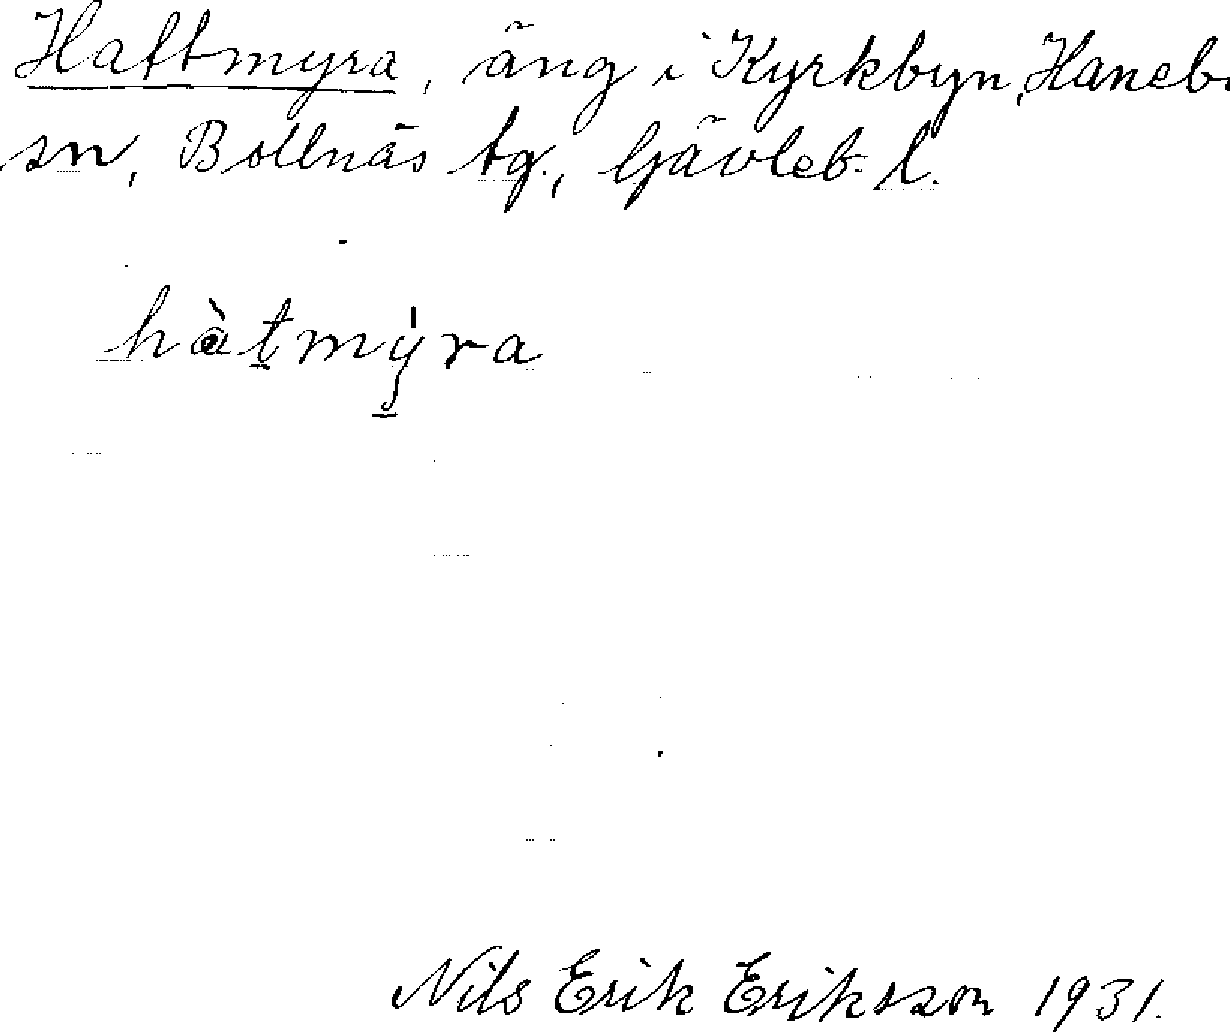 Hattmyra, äng i Kyrkbyn, Haneb
sn, Bollnäs tg., Gävleb. l.
hàtmy̍ra
Nils Erik Eriksson 1931.